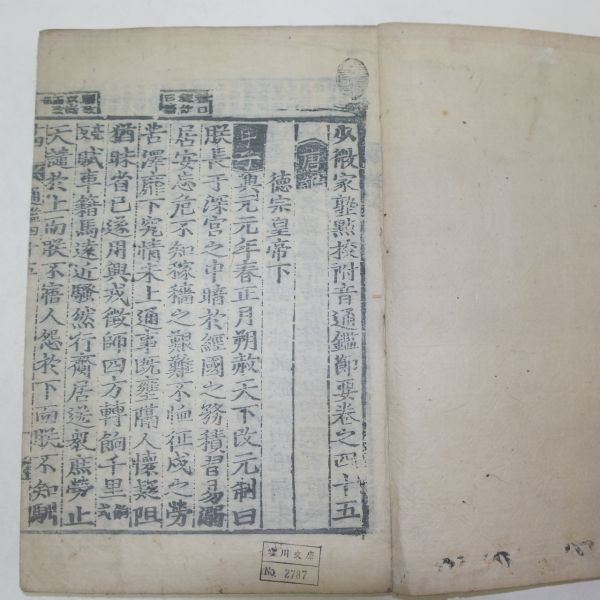 少微家塾點挍附音通鑑節要卷之四十五
唐紀
德宗皇帝下
甲子興元元年春正月朔赦天下改元制曰
朕長于深宮之中暗於經國之務積習易溺
居安忘危不知稼穡之艱難不恤征戍之勞
苦澤靡下究情未上通事既壅隔人懷疑阻
猶昧省己遂用興戎徵師四方轉餉千里
賦車籍馬遠近騷然行齎居送衆庶勞止
天譴於上而朕不寤人怨於下而朕不知馴
通鑑四十五
No. 2787